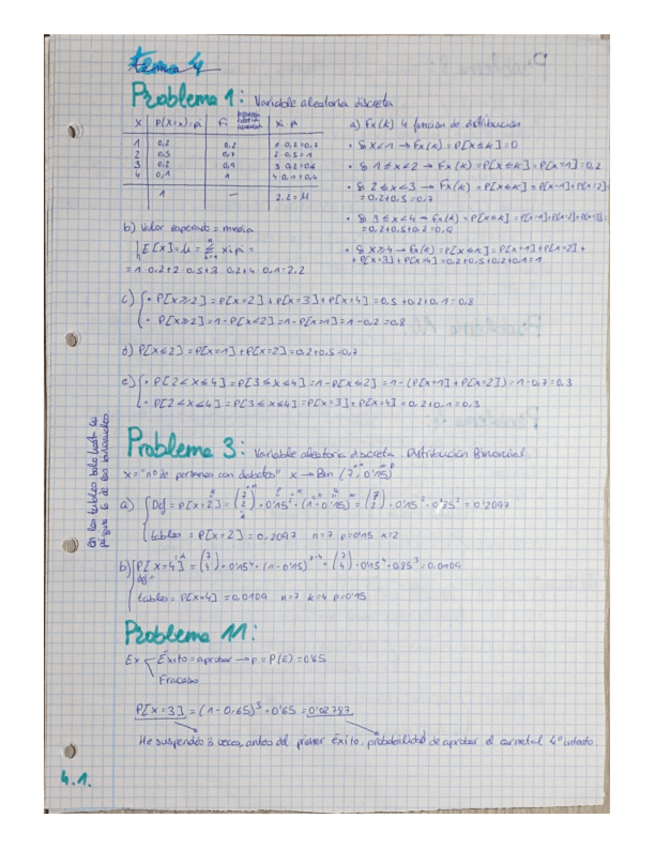 tema 4
Problema 1: Variable aleatoria discreta
X P(X=x)=pi Fi xi·pi
1 0,2 0,2 1·0,2=0,2
2 0,5 0,7 2·0,5=1
3 0,2 0,9 3·0,2=0,6
4 0,1 1 4·0,1=0,4
1 — 2.2=M
a) Fx(k) y función de distribución
• Si X<1 → Fx(k) = P[X≤k]=0
• Si 1≤x<2 → Fx(k)=P[X≤k]=P[X=1]=0,2
• Si 2≤x<3 → Fx(k)=P[X≤k]=P[X=1]+P[X=2]
=0,2+0,5=0,7
• Si 3≤x<4→Fx(k)=P[X≤k]=P[X=1]+P[X=2]+P[X=3]=
=0,2+0,5+0,2=0,9
• Si X≥4→Fx(k)=P[X≤k]=P[X=1]+P[X=2]+
+P[X=3]+P[X=4]=0,2+0,5+0,2+0,1=1
b) Valor esperado = media
E[X]=μ=Σ xi·pi=
=1·0,2+2·0,5+3·0,2+4·0,1=2,2
c) • P[X≥2]=P[X=2]+P[X=3]+P[X=4]=0,5+0,2+0,1=0,8
• P[X≥2]=1-P[X<2]=1-P[X=1]=1-0,2=0,8
d) P[X≤2]=P[X=1]+P[X=2]=0,2+0,5=0,7
e) • P[2<X≤4]=P[3≤X≤4]=1-P[X≤2]=1-(P[X=1]+P[X=2])=1-0,7=0,3
• P[2<X≤4]=P[3≤X≤4]=P[X=3]+P[X=4]=0,2+0,1=0,3
En las tablas solo hasta la
página 6 de las binomiales.
Problema 3: Variable aleatoria discreta. Distribución Binomial
X="nº de personas con diabetes" X→Bin (7, 0'15)
a) Def = P[X=2] = (7 2)·0'15²·(1-0'15) = (7 2)·0'15²·0'85⁵=0'2097
tablas = P[X=2]=0,2097 n=7 p=0'15 k=2
b) P[X=4]=(7 4)·0'15⁴·(1-0'15)⁷⁻⁴=(7 4)·0'15⁴·0,85³=0,0109
def=
tablas= P[X=4]=0,0109 n=7 k=4 p=0'15
Problema 11:
Ex Éxito=aprobar→p=P(E)=0'65
Fracaso
P[X=3]=(1-0,65)³·0'65=0'02787
He suspendido 3 veces, antes del primer éxito, probabilidad de aprobar el carnet al 4º intento.
4.1.